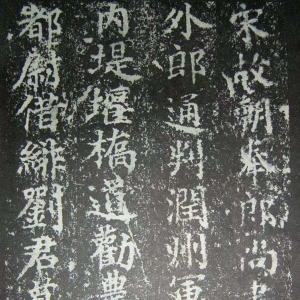 宋故朝奉郎尚書
外郎通判潤州軍
內堤堰橋道勸農
都尉借緋劉君墓